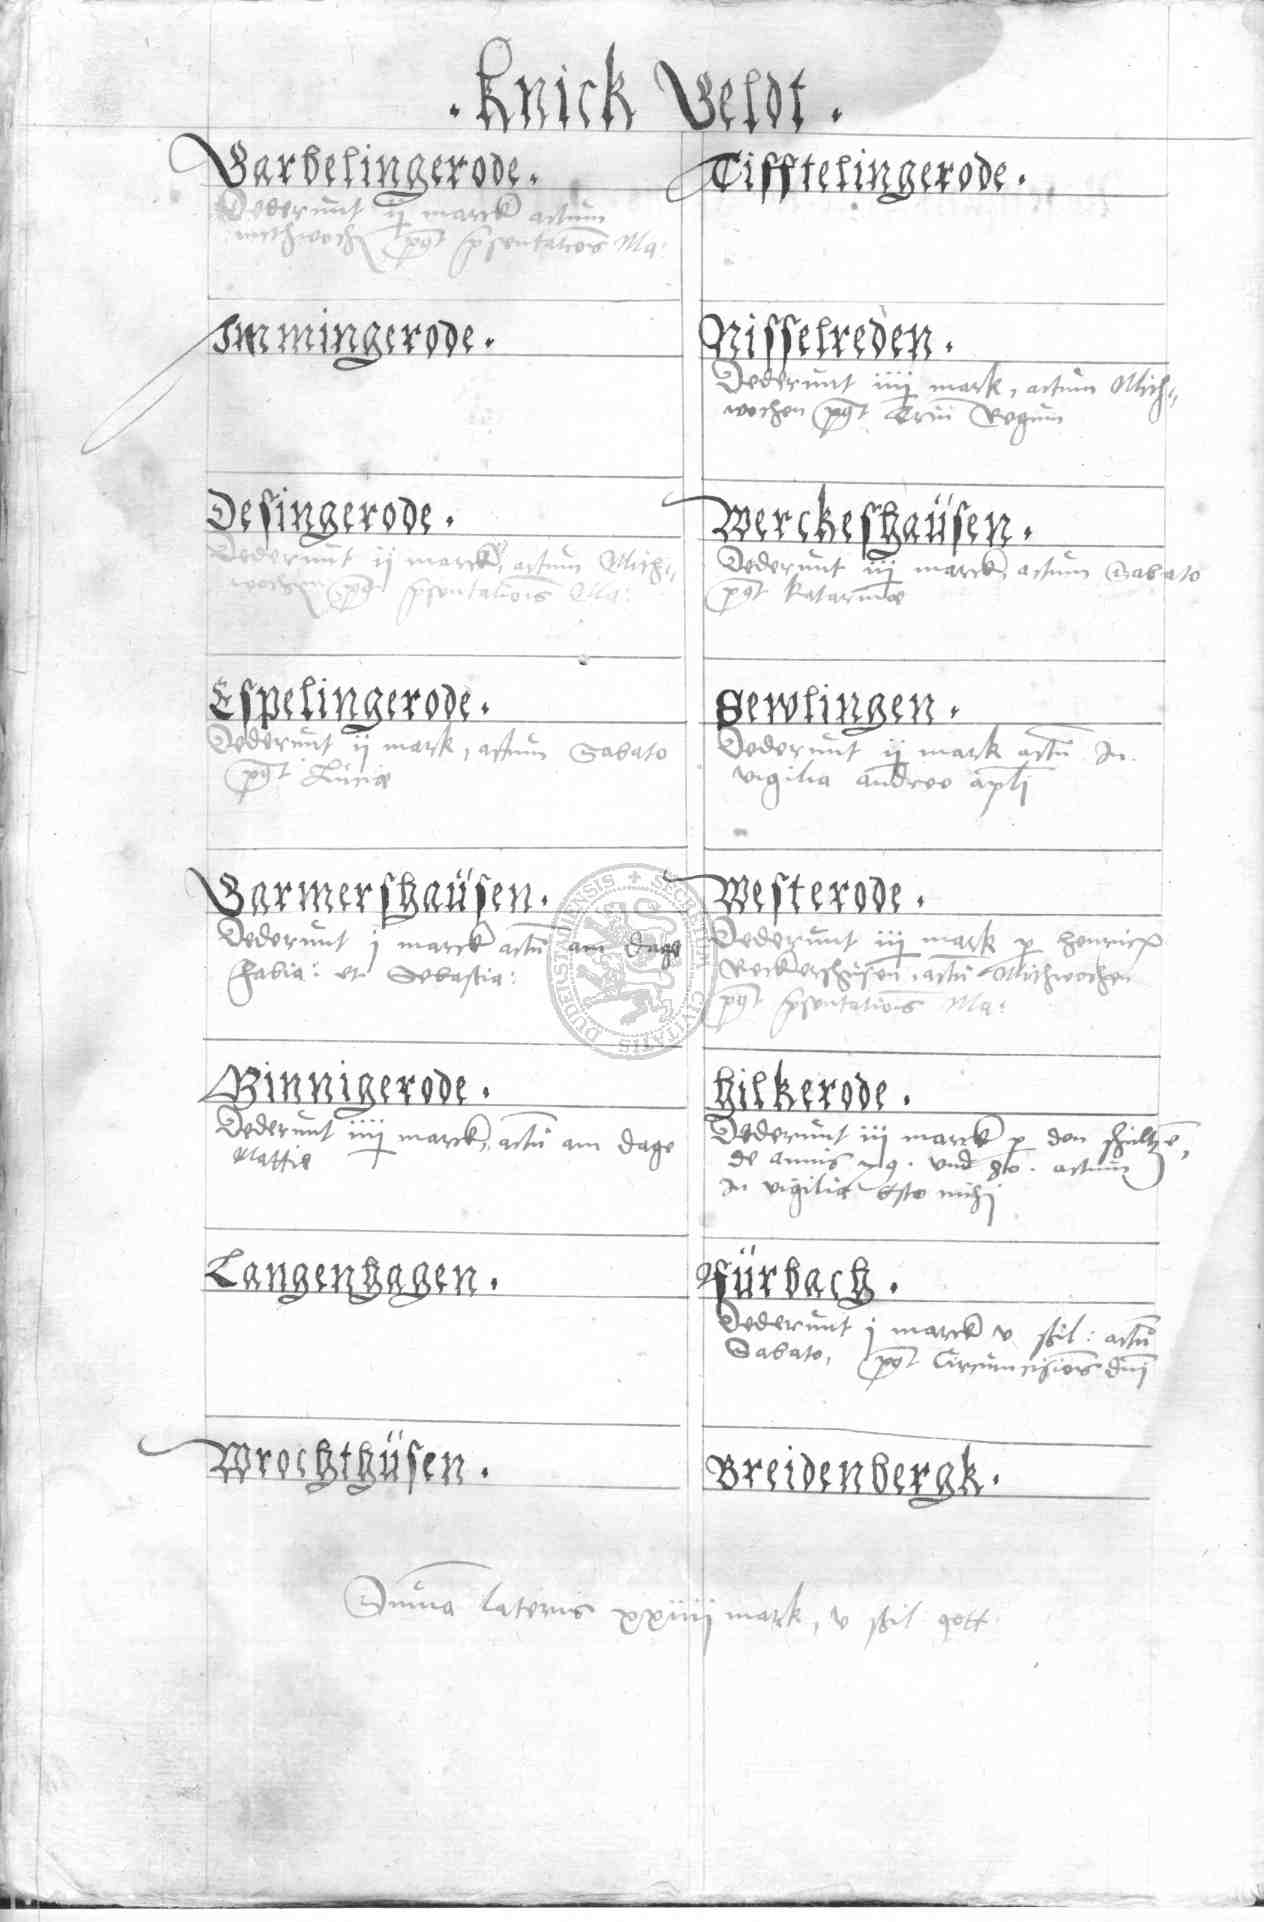 . Knick Veldt .
Garbelingerode .
Dederunt ij marck actum
mithwoch pꝰt p̃sentatiõis Ma:
Immingerode .
Desingerode .
Dederunt ij marck, actum Mich⸗
wochen pꝰt p̃sentatiõis Ma:
Espelingerode .
Dederunt ij mark, actum Sabato
pꝰt Lucie
Germershaüsen .
Dederunt j marck actũ am dage
fabia: et Sebastia:
Binnigerode .
Dederunt iiij marck, actũ am dage
Langenhagen .
Wrochthüsen .
Tifftelingerode .
Nisselreden .
Dederunt iiij mark, actum Mich⸗
wochen pꝰt Triũ Regum
Werckeshaüsen .
Dederunt iij marck, actum Sabato
pꝰt katarinæ
Sewlingen .
Dederunt ij mark actũ In
vigilia andree apl̃i
Westerode .
Dederunt iij mark p henrich
actũ Mithwochen
pꝰt p̃sentatiõis Ma:
hilkerode .
Dederunt iij marck p den schultzẽ,
de annis und actum
In vigilia Esto mihi
fürbach .
Dederunt j marck v ßil: actũ
Sabato, pꝰt Circumcisiõis dñi
Breidenbergk .
Sum̃a lateris xxiiij mark, v ßil gott
SECRETUM CIVITATIS DUDERSTADIENSIS